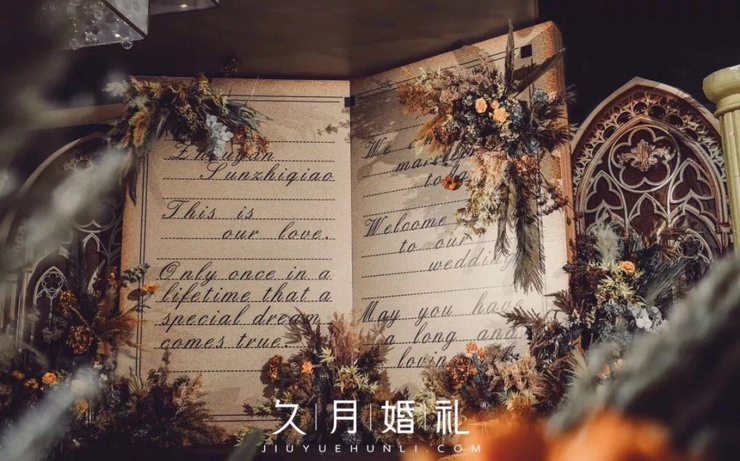 Sunzhiqiao
This is
our love.
Only once in a
lifetime that a
special dream
comes true.
We
to
Welcome
to our
wedding
May you have
a long and
loving
久月婚礼
JIUYUEHUNLI.COM